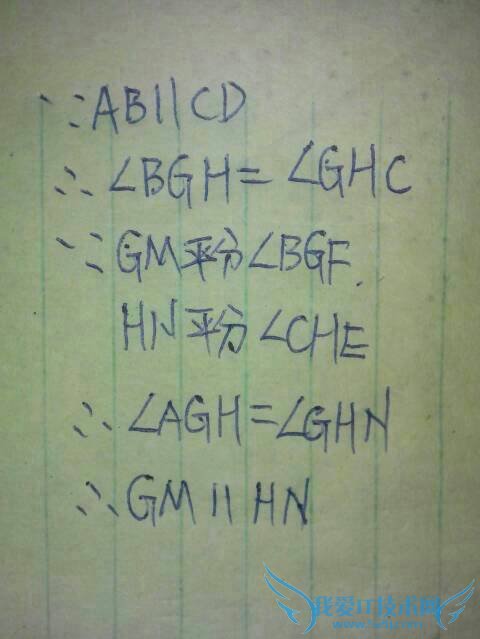 ∵AB∥CD
∴∠BGH=∠GHC
∵GM平分∠BGF.
HN平分∠CHE
∴∠AGH=∠GHN
∴GM∥HN
我爱IT技术网